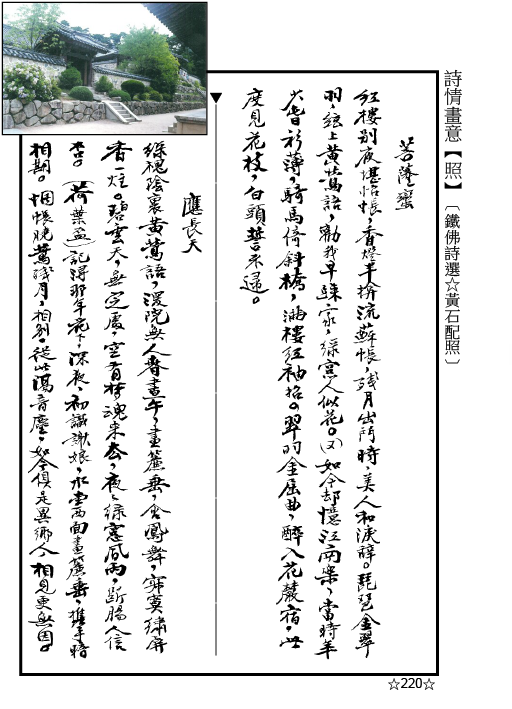 詩情畫意【照】〔鐵佛詩選☆黃石配照〕
菩薩蠻
紅樓別夜堪惆悵，香燈半捲流蘇帳，殘月出門時，美人和淚辭。琵琶金翠
羽，絃上黃鶯語，勸我早歸家，綠窗人似花。(又)如今却憶江南樂，當時年
少春衫薄，騎馬倚斜橋，滿樓紅袖招。翠屏金屈曲，醉入花叢宿，此
度見花枝，白頭誓不歸。
應長天
綠槐陰裏黃鶯語，深院無人春晝午，畫簾垂，金鳳舞，寂寞繡屏
香一炷。碧雲天，無定處，空有夢魂來去，夜夜綠窗風雨，斷腸人信
否。(荷葉盃)記得那年花下，深夜，初識謝娘，水堂西面畫簾垂，攜手暗
相期。惆悵曉鶯殘月，相別，從此隔音塵，如今俱是異鄉人，相見更無因。
☆220☆